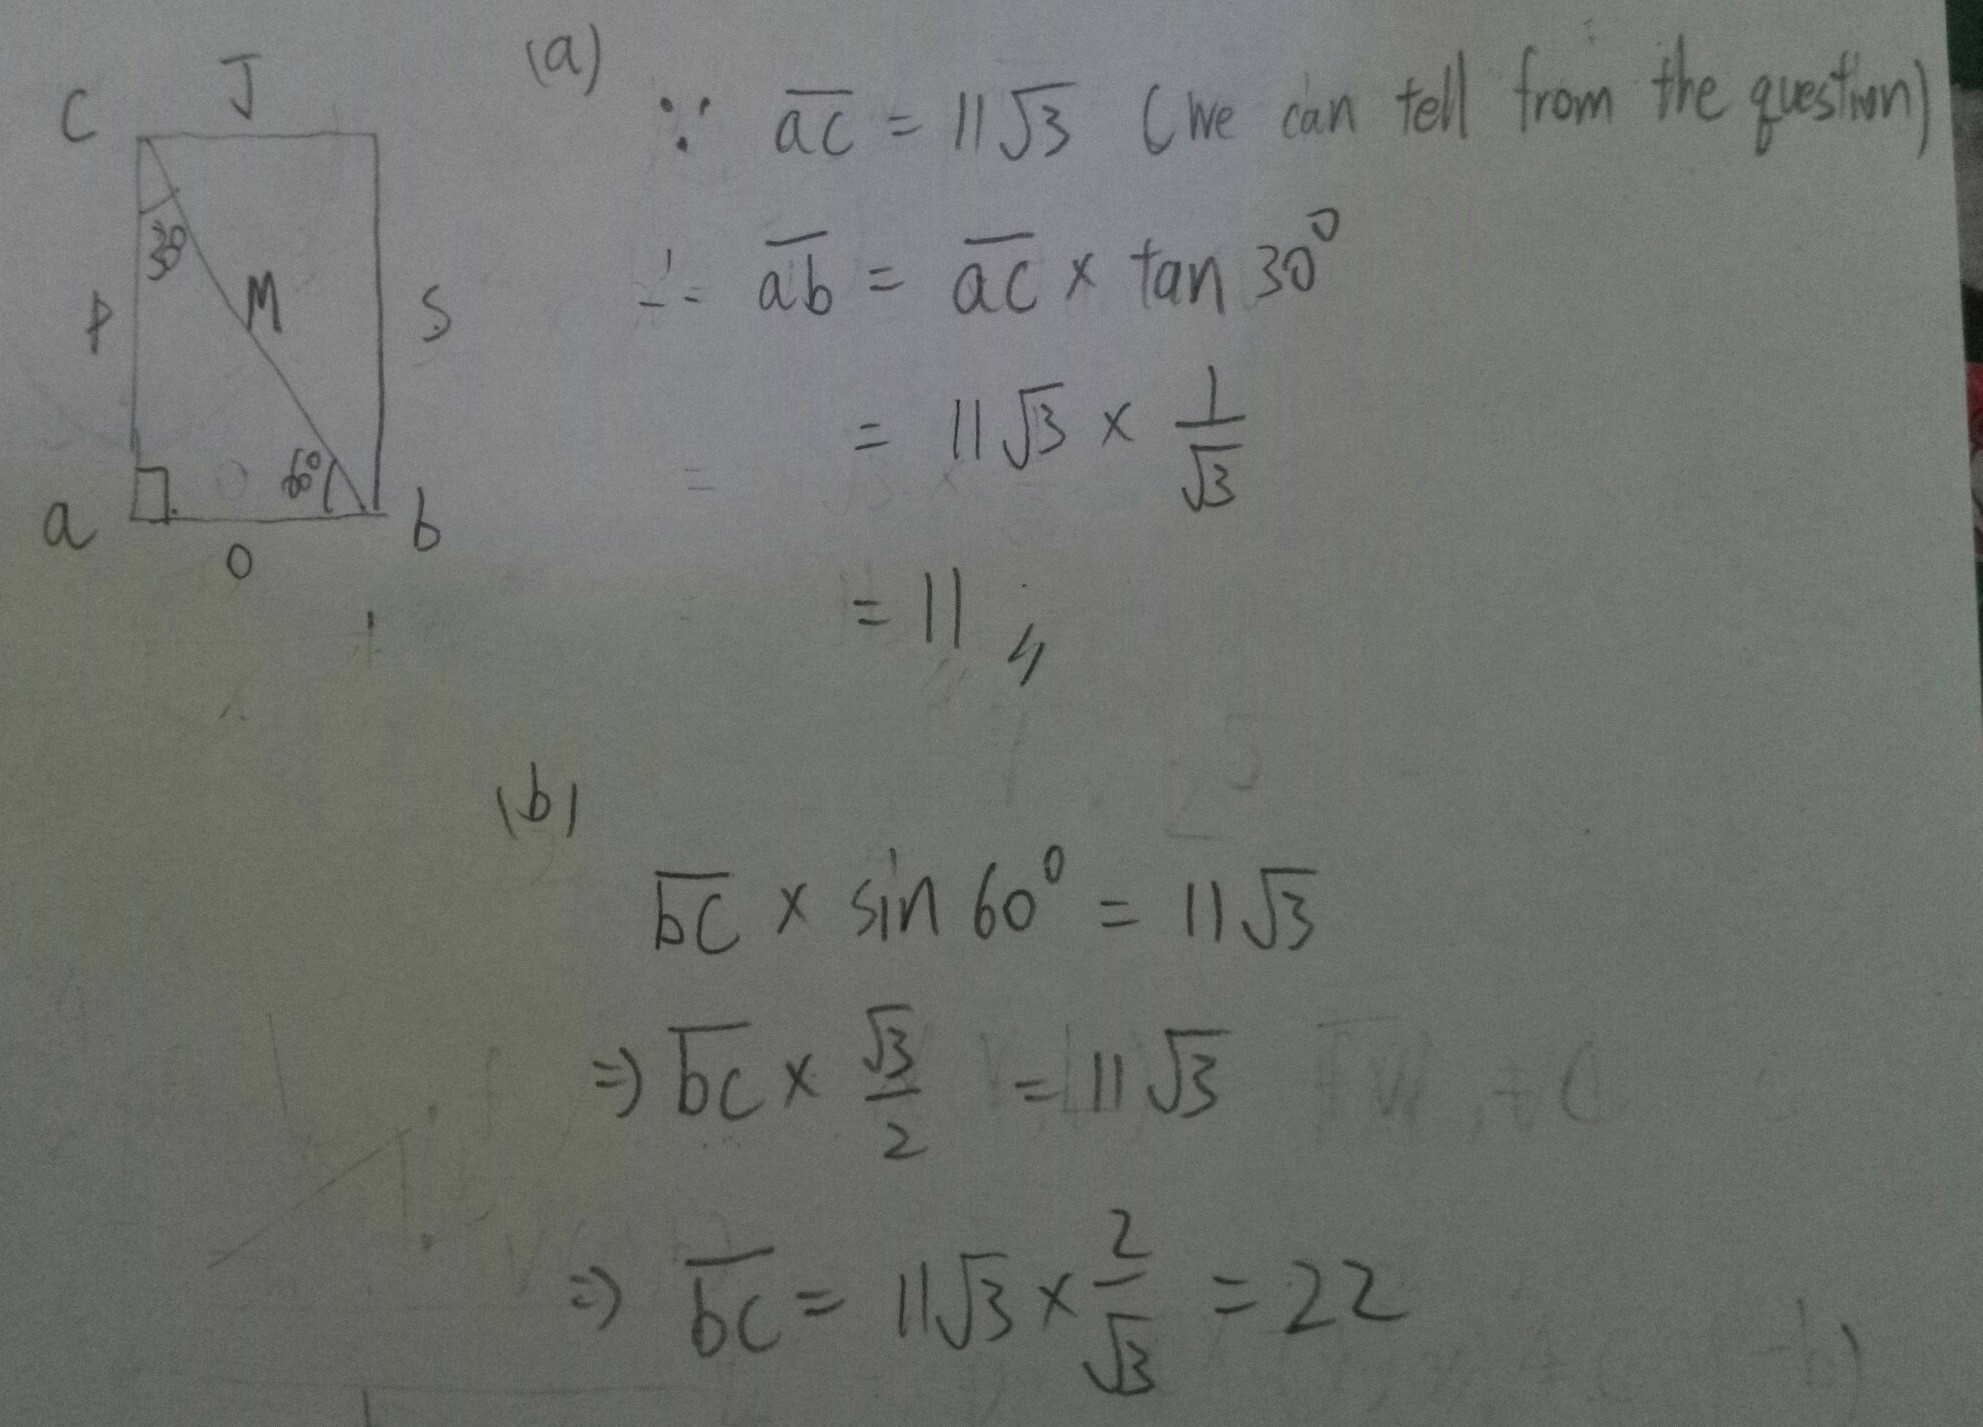 C J
30°
P M S
60°
a b
0
(a)
∵ ac̅ = 11√3 (We can tell from the question)
∴ ab̅ = ac̅ × tan 30°
= 11√3 × 1/√3
= 11 〃
(b)
bc̅ × sin 60° = 11√3
⇒ bc̅ × √3/2 = 11√3
⇒ bc̅ = 11√3 × 2/√3 = 22